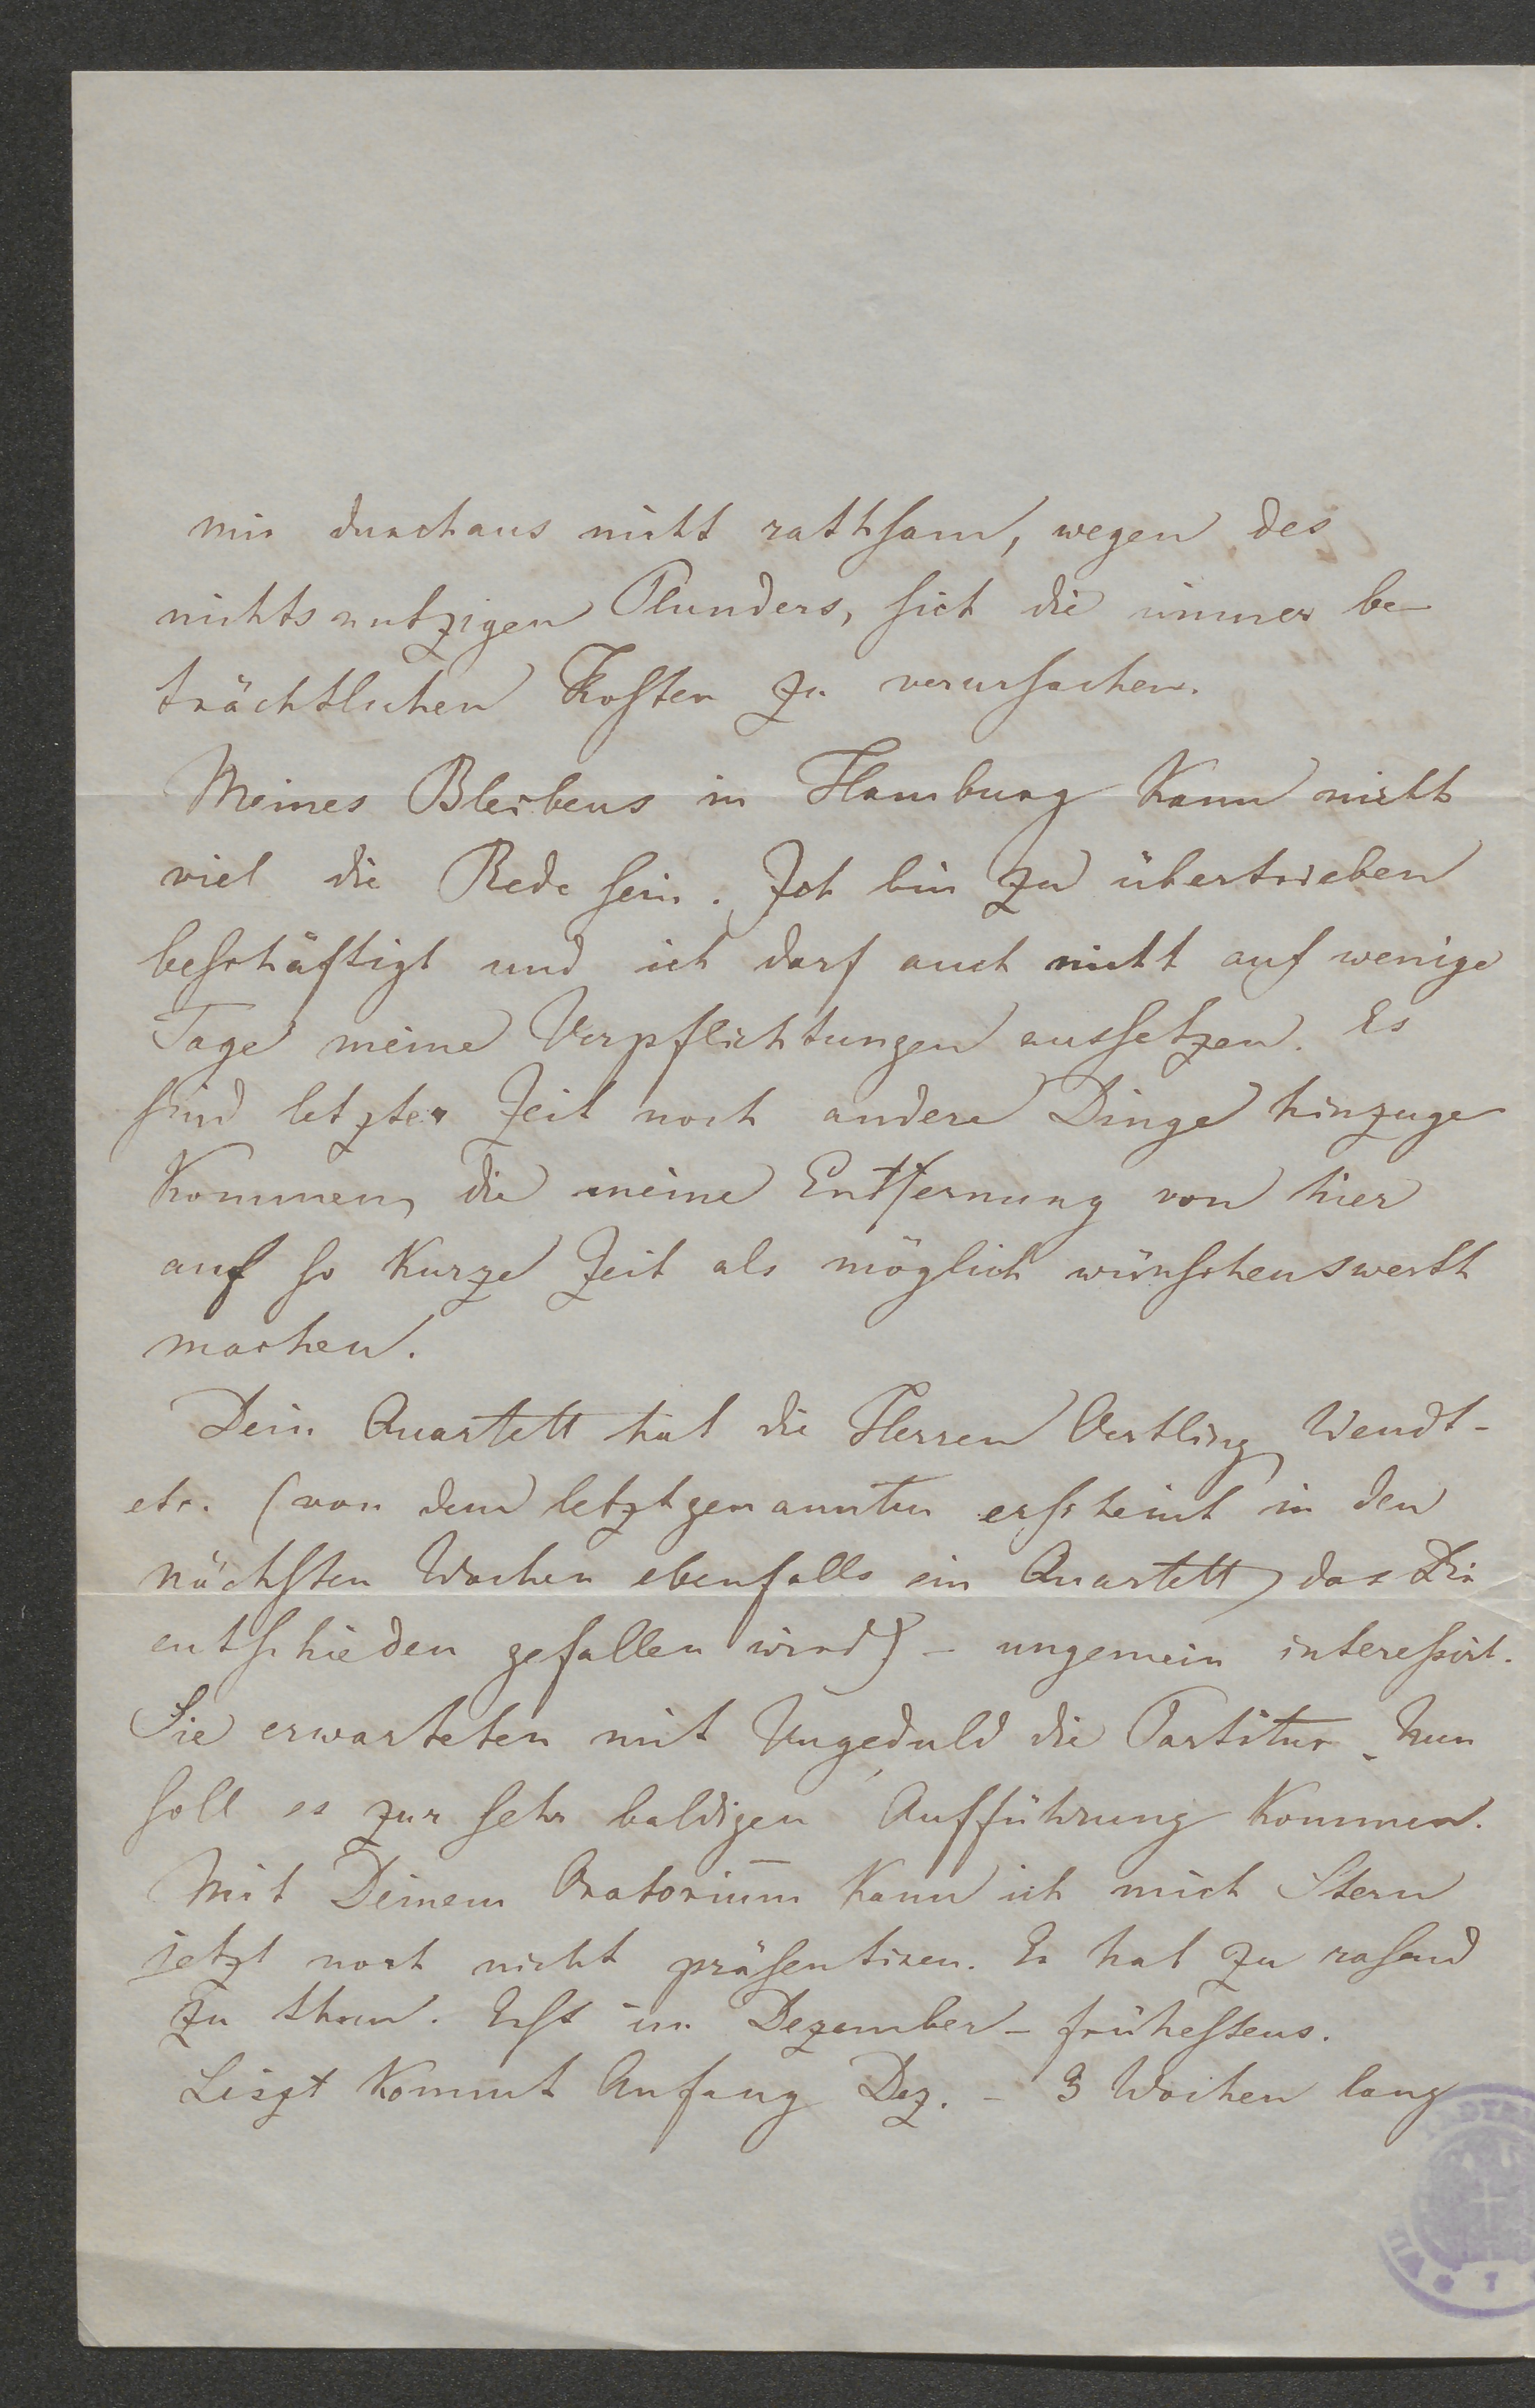 mir durchaus nicht rathsam, wegen des
nichtsnutzigen Plunders, sich die immer be-
trächtlichen Kosten zu verursachen.
Meines Bleibens in Hamburg kann nicht
viel die Rede sein. Ich bin zu übertrieben
beschäftigt und ich darf auch nicht auf wenige
Tage meine Verpflichtungen aussetzen. Es
sind letzter Zeit noch andere Dinge hinzuge
kommen, die meine Entfernung von hier
auf so kurze Zeit als möglich wünschenswerth
machen.
Dein Quartett hat die Herren Oertling Wendt-
etc. (von dem letztgenannten erscheint in den
nächsten Wochen ebenfalls ein Quartett, das Dir
entschieden gefallen wird) – ungemein interessirt.
Sie erwarteten mit Ungeduld die Partitur. Nun
soll es zur sehr baldigen Aufführung kommen.
Mit Deinem Oratorium kann ich mich Stern
jetzt noch nicht präsentiren. Er hat zu rasend
zu thun. Erst im Dezember – frühestens.
Liszt kommt Anfang Dez. – 3 Wochen lang